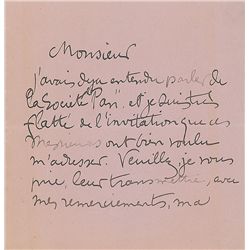 Monsieur
j'avais déja entendu parler de
la Société "Pan" et je suis très
flatté de l'invitation que ces
Messieurs ont bien voulu
m'adresser. Veuillez, je vous
prie, leur transmettre, avec
mes remerciements, ma